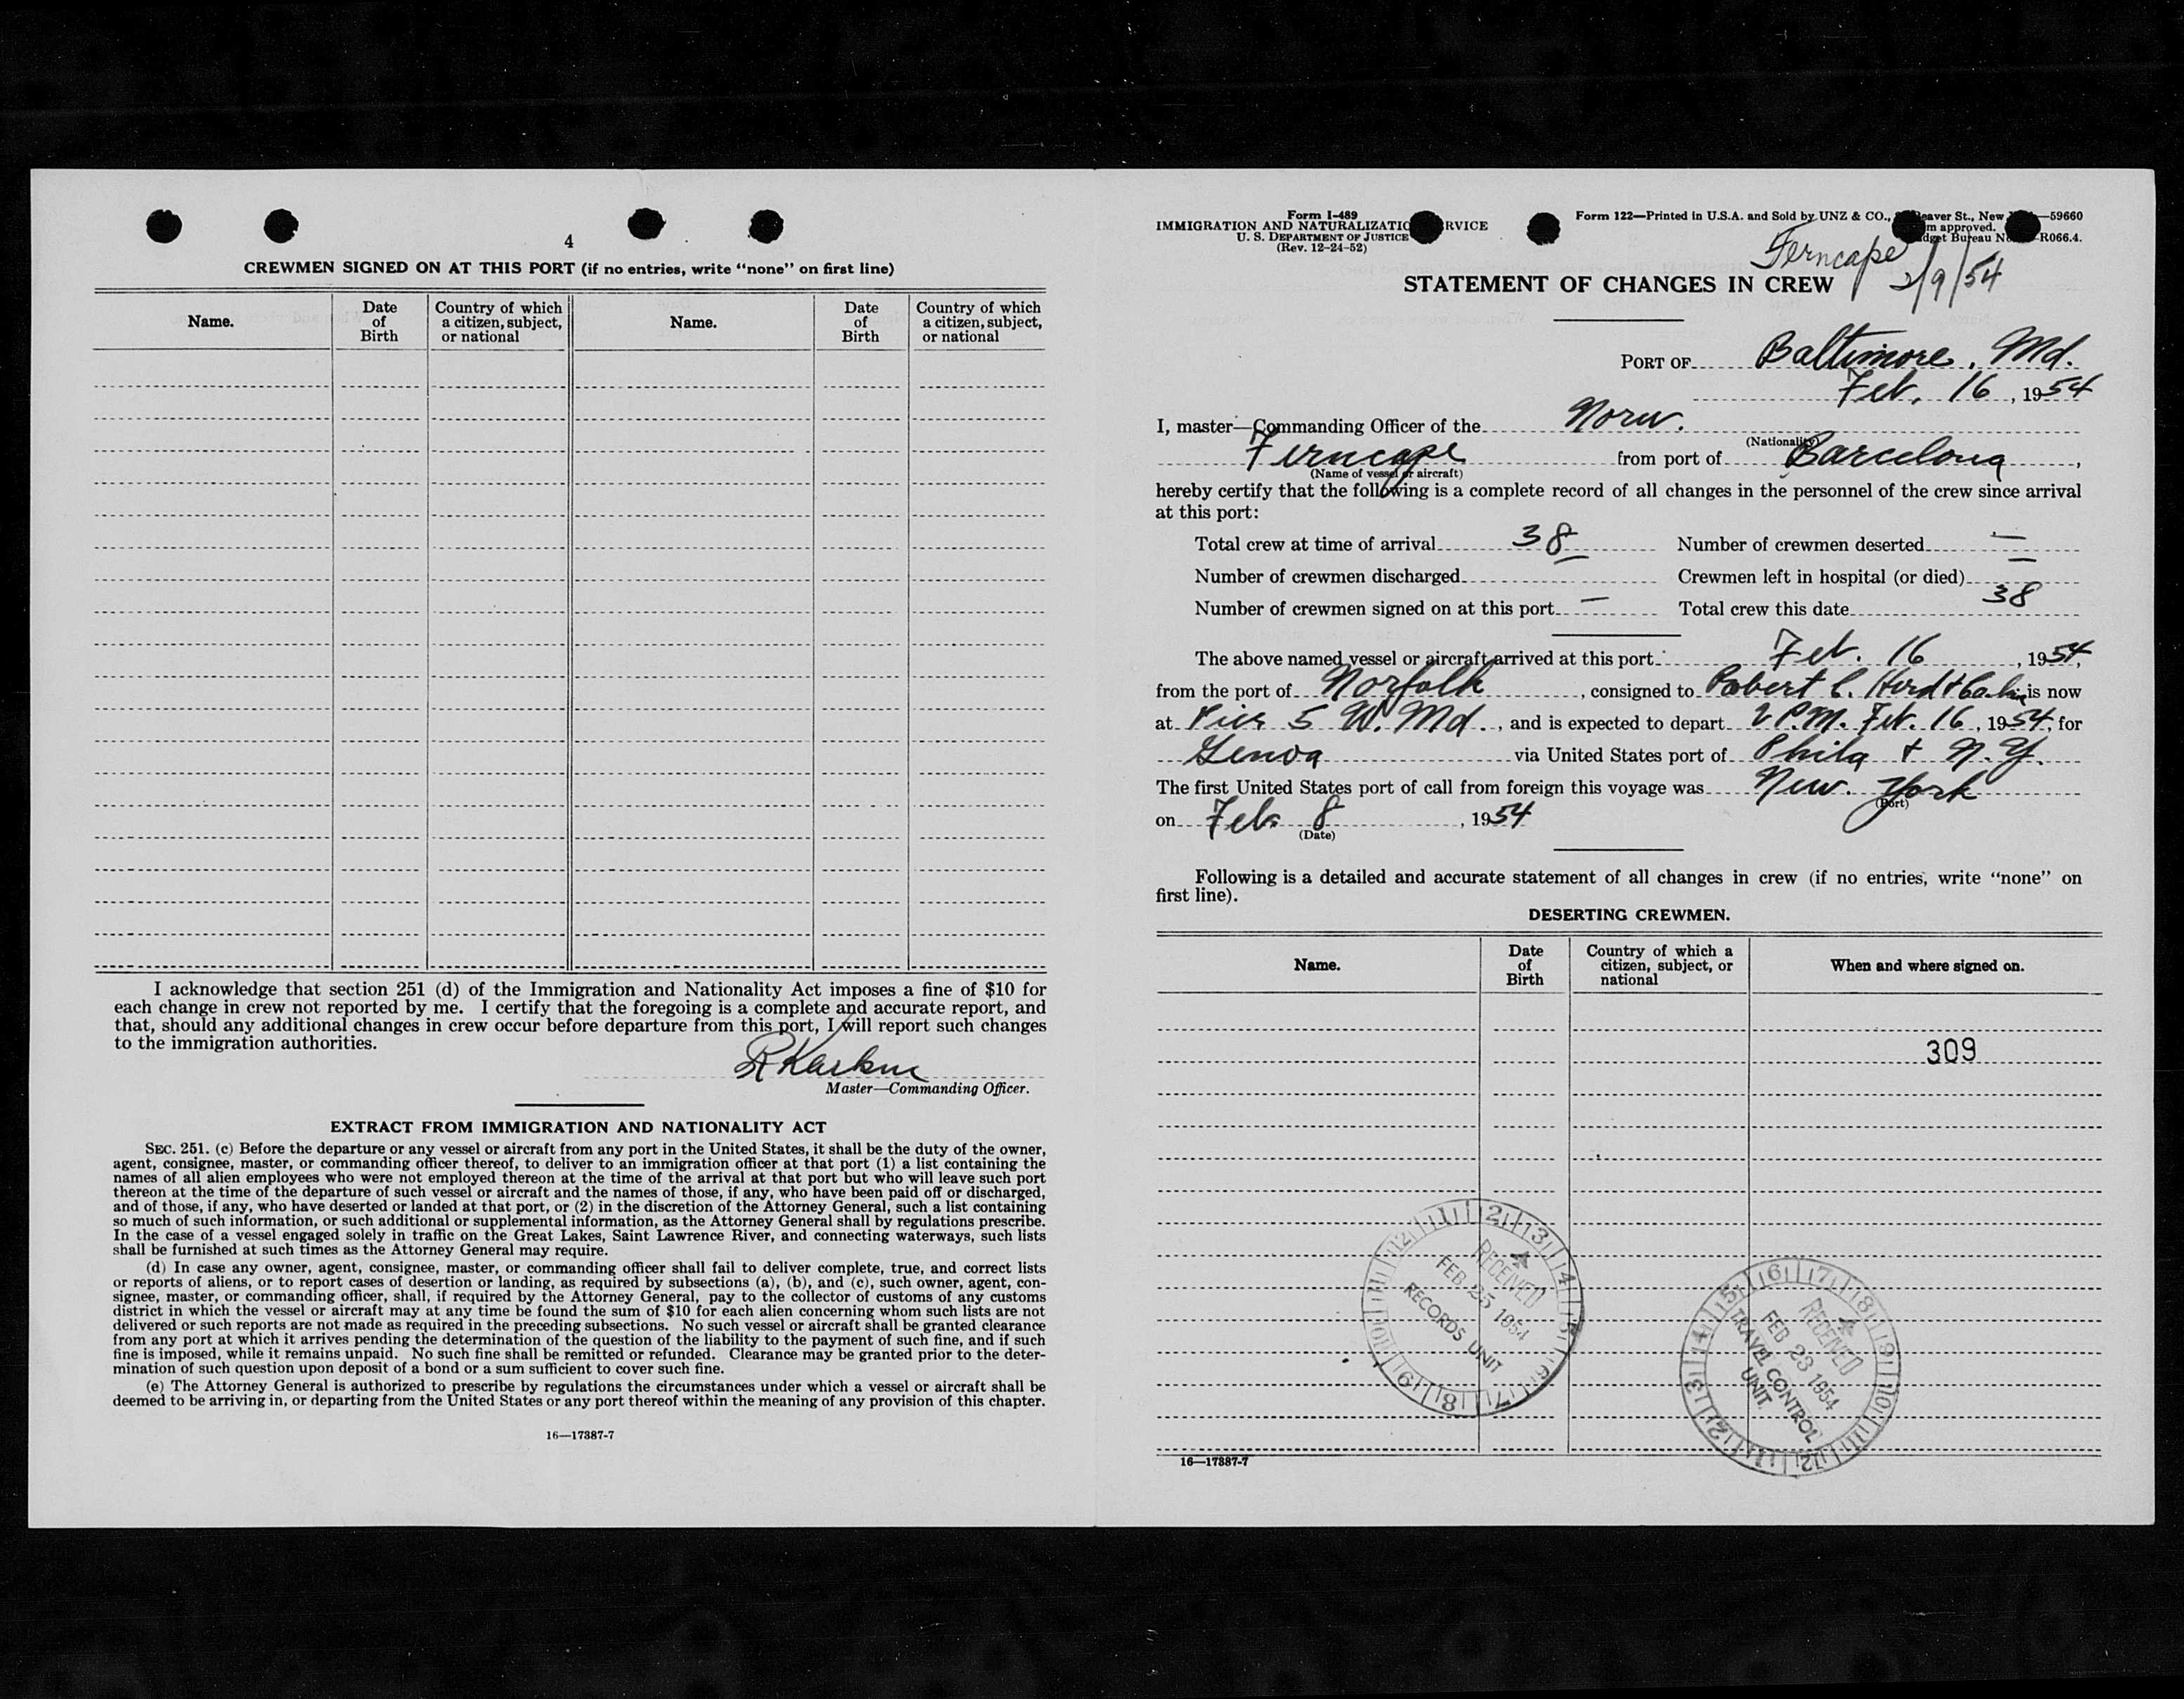 4
CREWMEN SIGNED ON AT THIS PORT (if no entries, write “none” on first line)
Name.
Date of Birth
Country of which a citizen, subject, or national
Name.
Date of Birth
Country of which a citizen, subject, or national
I acknowledge that section 251 (d) of the Immigration and Nationality Act imposes a fine of $10 for
each change in crew not reported by me. I certify that the foregoing is a complete and accurate report, and
that, should any additional changes in crew occur before departure from this port, I will report such changes
to the immigration authorities.
Master—Commanding Officer.
EXTRACT FROM IMMIGRATION AND NATIONALITY ACT
SEC. 251. (c) Before the departure or any vessel or aircraft from any port in the United States, it shall be the duty of the owner,
agent, consignee, master, or commanding officer thereof, to deliver to an immigration officer at that port (1) a list containing the
names of all alien employees who were not employed thereon at the time of the arrival at that port but who will leave such port
thereon at the time of the departure of such vessel or aircraft and the names of those, if any, who have been paid off or discharged,
and of those, if any, who have deserted or landed at that port, or (2) in the discretion of the Attorney General, such a list containing
so much of such information, or such additional or supplemental information, as the Attorney General shall by regulations prescribe.
In the case of a vessel engaged solely in traffic on the Great Lakes, Saint Lawrence River, and connecting waterways, such lists
shall be furnished at such times as the Attorney General may require.
(d) In case any owner, agent, consignee, master, or commanding officer shall fail to deliver complete, true, and correct lists
or reports of aliens, or to report cases of desertion or landing, as required by subsections (a), (b), and (c), such owner, agent, con-
signee, master, or commanding officer, shall, if required by the Attorney General, pay to the collector of customs of any customs
district in which the vessel or aircraft may at any time be found the sum of $10 for each alien concerning whom such lists are not
delivered or such reports are not made as required in the preceding subsections. No such vessel or aircraft shall be granted clearance
from any port at which it arrives pending the determination of the question of the liability to the payment of such fine, and if such
fine is imposed, while it remains unpaid. No such fine shall be remitted or refunded. Clearance may be granted prior to the deter-
mination of such question upon deposit of a bond or a sum sufficient to cover such fine.
(e) The Attorney General is authorized to prescribe by regulations the circumstances under which a vessel or aircraft shall be
deemed to be arriving in, or departing from the United States or any port thereof within the meaning of any provision of this chapter.
16—17387-7
Form I-489
IMMIGRATION AND NATURALIZATIO RVICE
U. S. DEPARTMENT OF JUSTICE
(Rev. 12-24-52)
Form 122—Printed in U.S.A. and Sold by UNZ & CO., eaver St., New —59660
m approved.
dget Bureau No. —R066.4.
Ferncape
2/9/54
STATEMENT OF CHANGES IN CREW
PORT OF Baltimore, Md.
Feb. 16, 1954
I, master—Commanding Officer of the Norw.
(Nationality)
Ferncape from port of Barcelona,
(Name of vessel or aircraft)
hereby certify that the following is a complete record of all changes in the personnel of the crew since arrival
at this port:
Total crew at time of arrival 38 Number of crewmen deserted —
Number of crewmen discharged Crewmen left in hospital (or died) —
Number of crewmen signed on at this port — Total crew this date 38
The above named vessel or aircraft arrived at this port Feb. 16, 1954,
from the port of Norfolk, consigned to Robert C. is now
at Pier 5 W. Md., and is expected to depart 2 P.M. Feb. 16, 1954, for
Genoa via United States port of Phila & N.Y.
The first United States port of call from foreign this voyage was New York
(Port)
on Feb 8, 1954
(Date)
Following is a detailed and accurate statement of all changes in crew (if no entries, write “none” on
first line).
DESERTING CREWMEN.
Name.
Date of Birth
Country of which a citizen, subject, or national
When and where signed on.
309
RECEIVED
FEB 25 1954
RECORDS UNIT
RECEIVED
FEB 23 1954
TRAVEL CONTROL
UNIT
16—17387-7